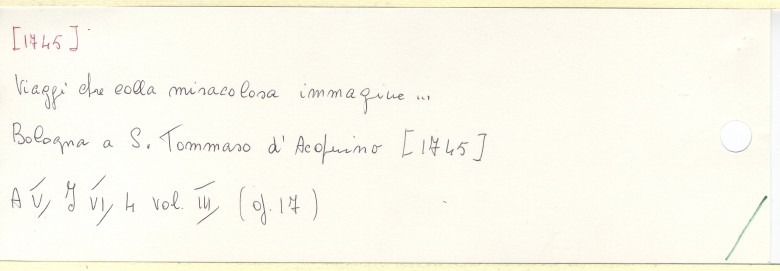 [1745]
Viaggi che colla miracolosa immagine ...
Bologna a S. Tommaso d'Acquino [1745]
A V, I VI, 4 vol. III, (op. 17)